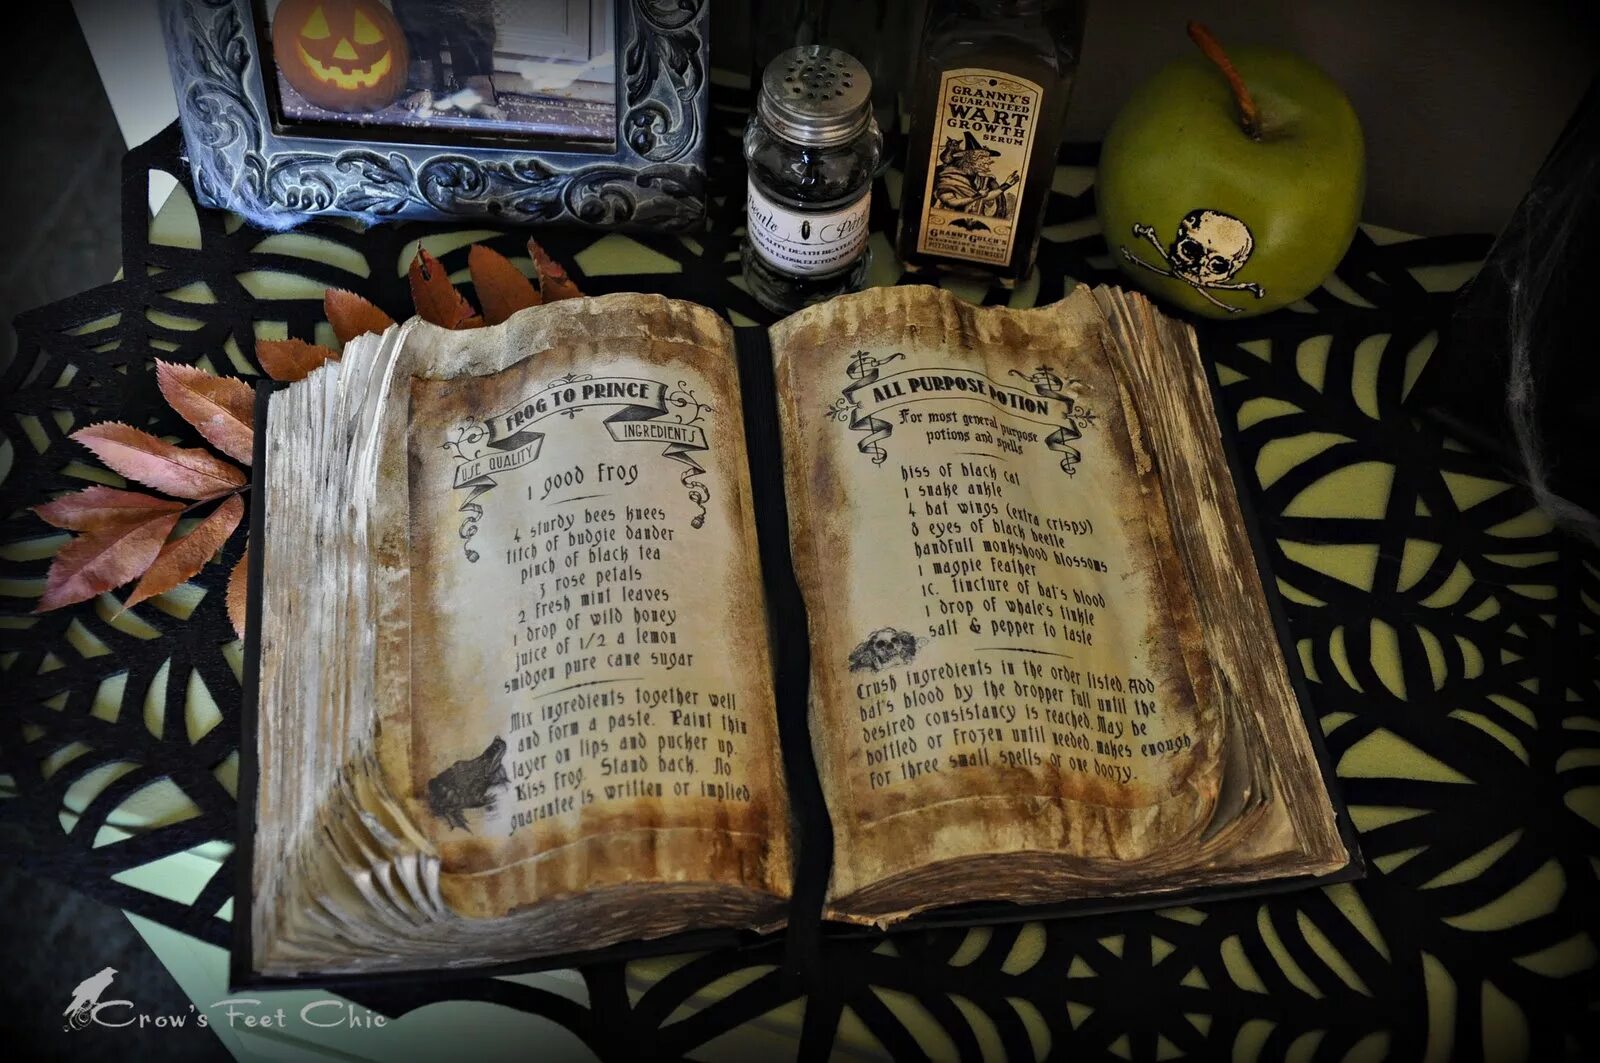 GRANNY'S
GUARANTEED
WART
GROWTH
SERUM
GRANNY GULCH'S
POTIONS & WHIMSIES
QUALITY DEATH BEATLE
EXOSKELETON
FROG TO PRINCE
USE QUALITY
INGREDIENTS
1 good frog
4 sturdy bees knees
titch of budgie dander
pinch of black tea
3 rose petals
2 fresh mint leaves
1 drop of wild honey
juice of 1/2 a lemon
smidgen pure cane sugar
Mix ingredients together well
and form a paste. Paint thin
layer on lips and pucker up.
Kiss frog. Stand back. No
guarantee is written or implied
ALL PURPOSE POTION
For most general purpose
potions and spells
hiss of black cat
1 snake ankle
4 bat wings (extra crispy)
8 eyes of black beetle
handfull monkshood blossoms
1 magpie feather
1c. tincture of bat's blood
1 drop of whale's tinkle
salt & pepper to taste
Crush ingredients in the order listed. Add
bat's blood by the dropper full until the
desired consistancy is reached. May be
bottled or frozen until needed. makes enough
for three small spells or one doozy.
Crow's Feet Chic